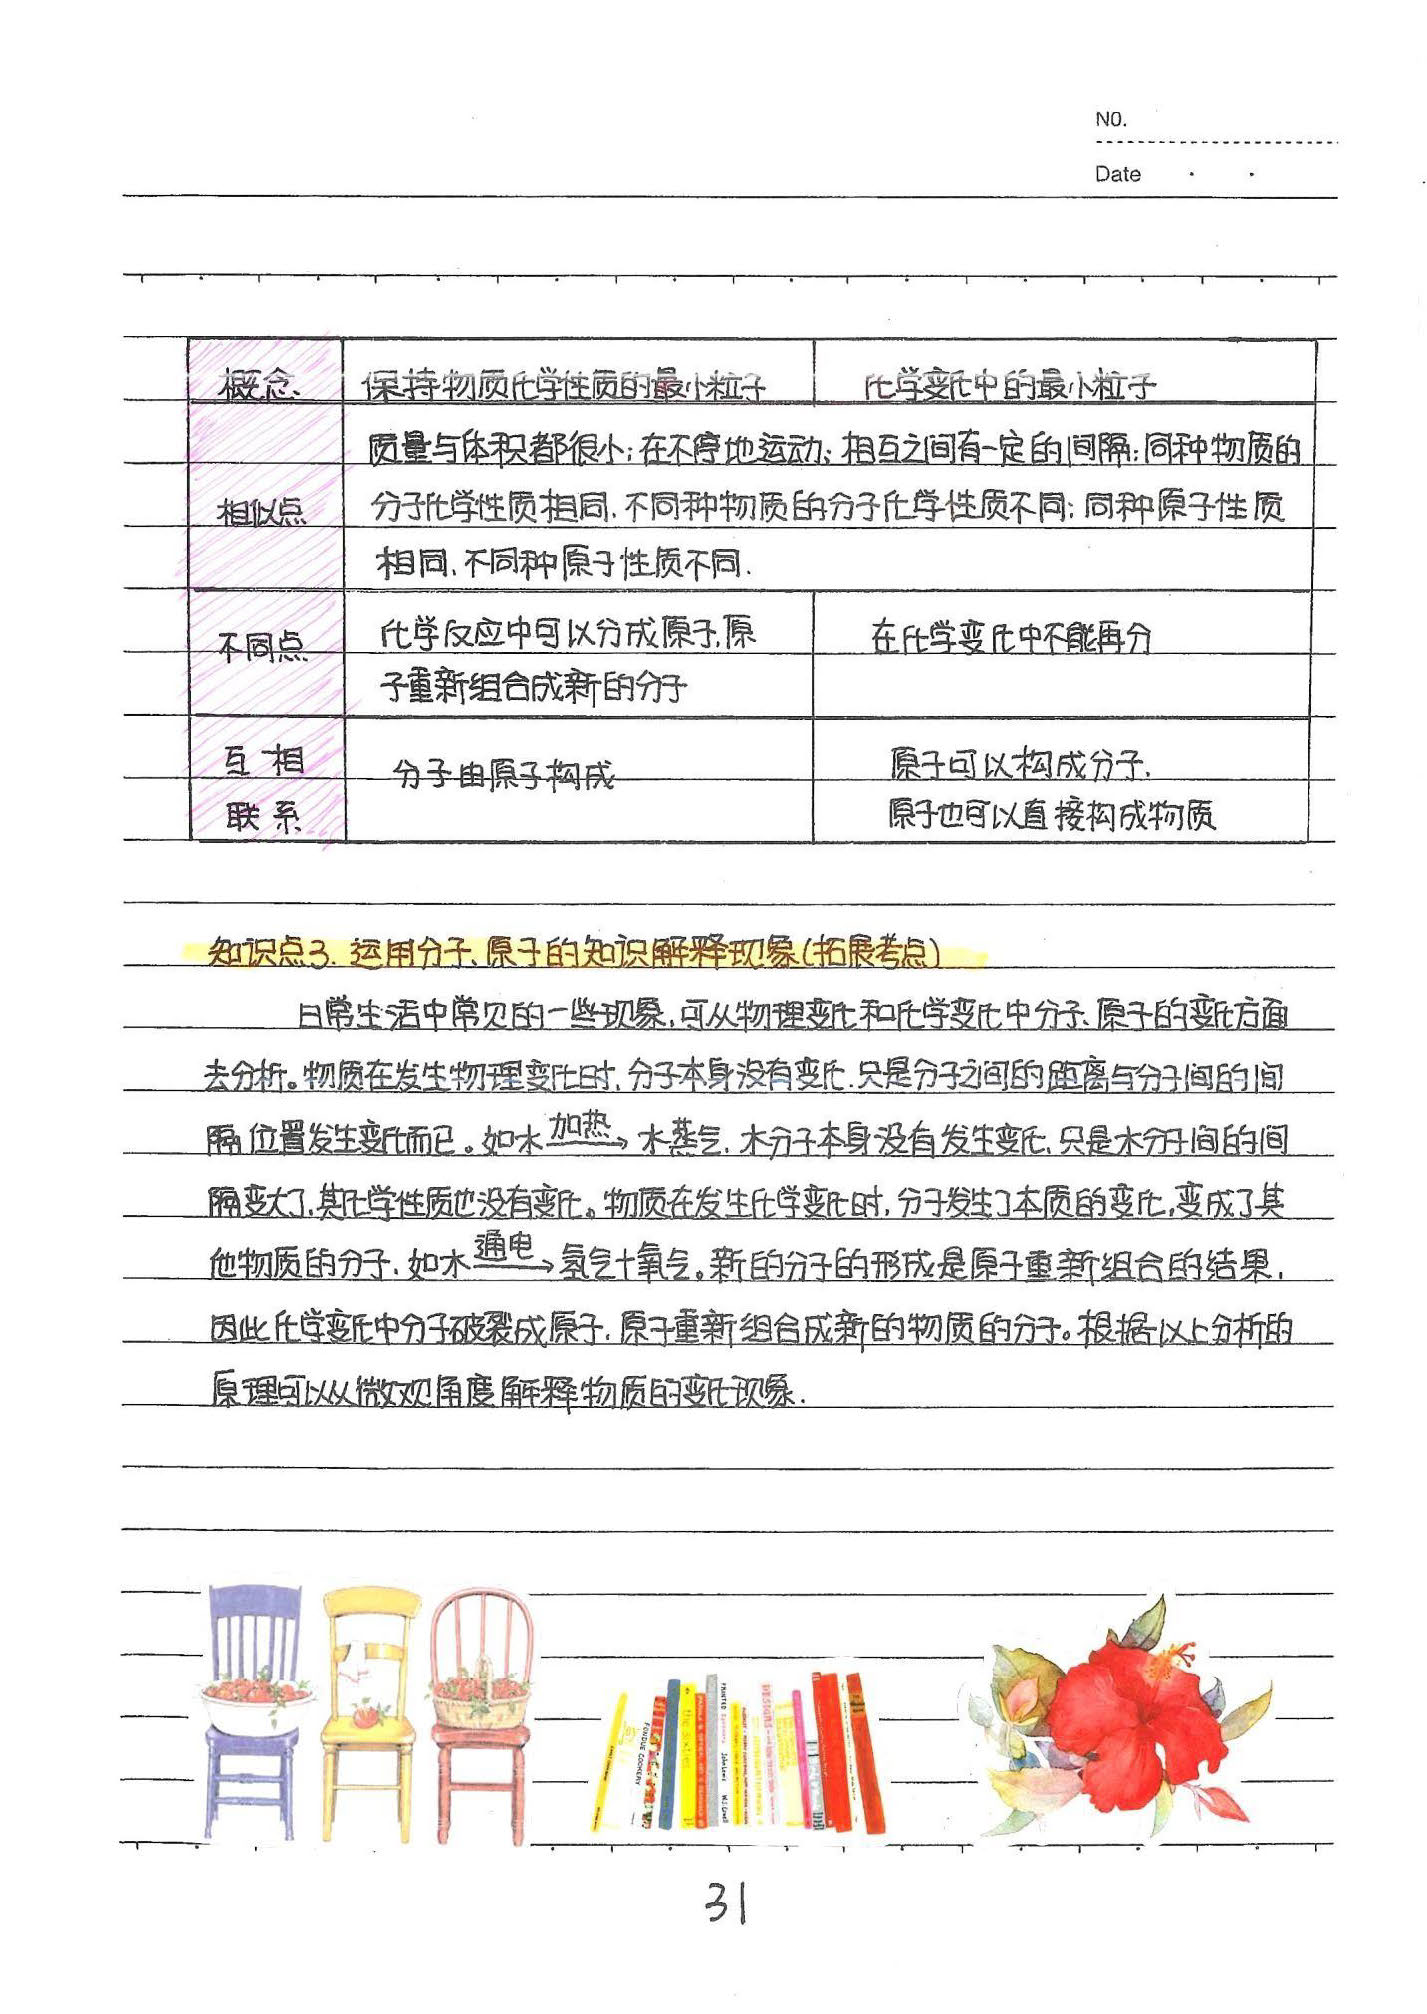 NO.
Date
概念 保持物质化学性质的最小粒子 化学变化中的最小粒子
质量与体积都很小;在不停地运动;相互之间有一定的间隔;同种物质的
相似点 分子化学性质相同,不同种物质的分子化学性质不同;同种原子性质
相同,不同种原子性质不同.
不同点 化学反应中可以分成原子,原 在化学变化中不能再分
子重新组合成新的分子
互相 分子由原子构成 原子可以构成分子,
联系 原子也可以直接构成物质
知识点3. 运用分子、原子的知识解释现象(拓展考点)
日常生活中常见的一些现象,可从物理变化和化学变化中分子、原子的变化方面
去分析。物质在发生物理变化时,分子本身没有变化,只是分子之间的距离与分子间的间
隔位置发生变化而已。如水 加热→ 水蒸气,水分子本身没有发生变化,只是水分子间的间
隔变大了,其化学性质也没有变化。物质在发生化学变化时,分子发生了本质的变化,变成了其
他物质的分子,如水 通电→ 氢气+氧气。新的分子的形成是原子重新组合的结果,
因此化学变化中分子破裂成原子,原子重新组合成新的物质的分子。根据以上分析的
原理可以从微观角度解释物质的变化现象.
FONDUE COOKERY
the sixties
PRINTED
John Lewis
DESIGNS
31